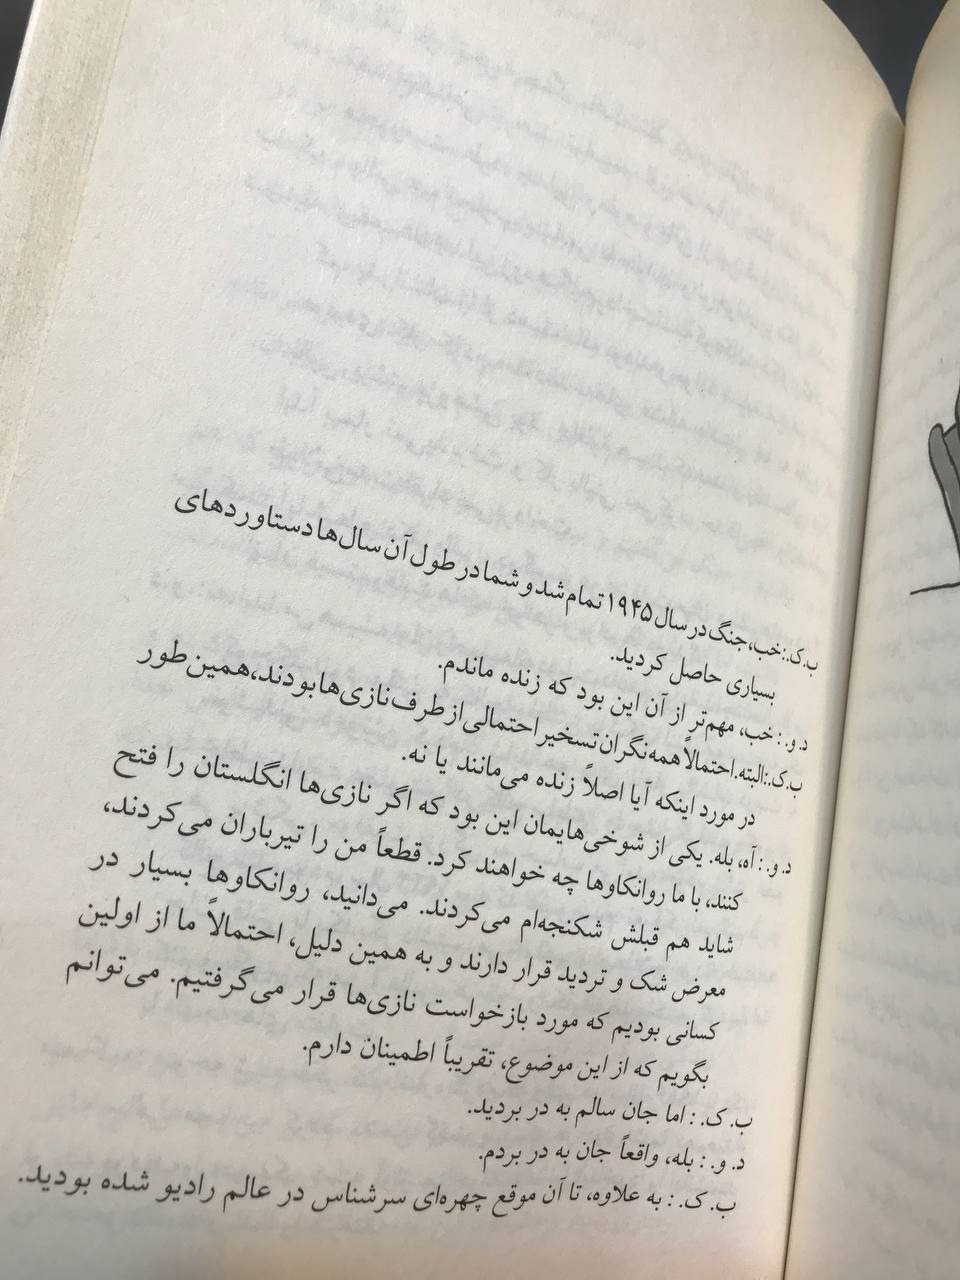 ب. ک.: خب، جنگ در سال ۱۹۴۵ تمام شد و شما در طول آن سال‌ها دستاوردهای
بسیاری حاصل کردید.
د. و. : خب، مهم‌تر از آن این بود که زنده ماندم.
ب. ک.: البته. احتمالاً همه نگران تسخیر احتمالی از طرف نازی‌ها بودند، همین‌طور
در مورد اینکه آیا اصلاً زنده می‌مانند یا نه.
د. و. : آه، بله. یکی از شوخی‌هایمان این بود که اگر نازی‌ها انگلستان را فتح
کنند، با ما روانکاوها چه خواهند کرد. قطعاً من را تیرباران می‌کردند،
شاید هم قبلش شکنجه‌ام می‌کردند. می‌دانید، روانکاوها بسیار در
معرض شک و تردید قرار دارند و به همین دلیل، احتمالاً ما از اولین
کسانی بودیم که مورد بازخواست نازی‌ها قرار می‌گرفتیم. می‌توانم
بگویم که از این موضوع، تقریباً اطمینان دارم.
ب. ک. : اما جان سالم به در بردید.
د. و. : بله، واقعاً جان به در بردم.
ب. ک. : به علاوه، تا آن موقع چهره‌ای سرشناس در عالم رادیو شده بودید.